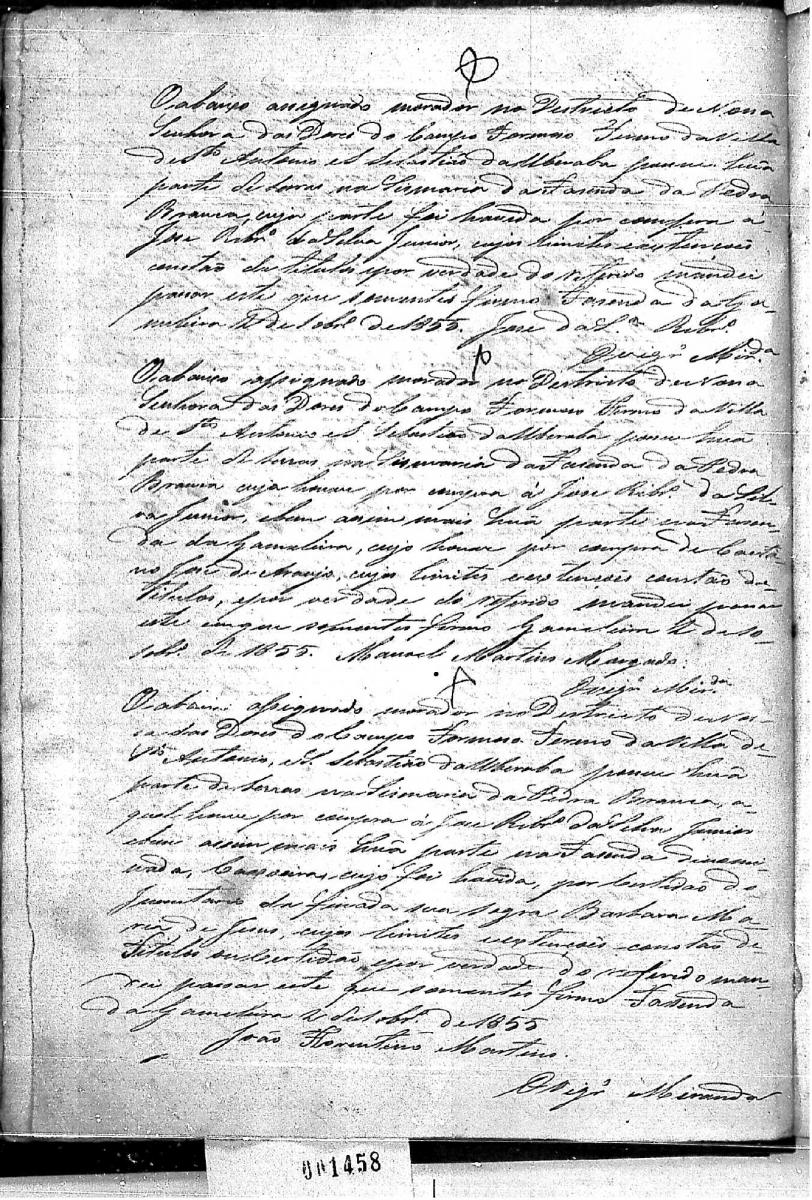 O abaixo assignado morador no Destricto de Nossa
Senhora das Dores do Campo Formoso Termo da Villa
de Sto Antonio e S Sebastião da Uberaba possue huã
parte de terras na Sismaria da Fasenda da Pedra
Branca, cuja parte foi havida por compra á
Jose Ribrº da Silva Junior, cujos limites e extençoes
constão de titulos e por verdade do referido mandei
passar este que somentes firmo Fasenda da Ga-
meleira 2 de 8obrº de 1855. Jose da Sª Ribrº
O vigrº Mirda
O abaixo assignado morador no Destricto de Nossa
Senhora das Dores do Campo Formoso Termo da Villa
de Sto Antonio e S Sebastião da Uberaba possue huã
parte de terras na Sismaria da Fasenda da Pedra
Branca cuja houve por compra á Jose Ribrº da Sil-
va Junior, e bem assim mais huã parte na Fasen-
da da Gameleira, cujo houve por compra de Caeta-
no Jose de Araujo, cujos limites e extençoes constão de
titulos, e por verdade do referido mandei passar
este em que somentes firmo Gameleira 2 de 8o-
obrº de 1855. Manoel Martins Margado.
O vigrº Mirda
O abaixo assignado morador no Destricto de Nos-
sa das Dores do Campo Formoso Termo da Villa de
Sto Antonio, e S. Sebastião da Uberaba possue huã
parte de terras na Sismaria da Pedra Branca, a
qual houve por compra á Jose Ribrº da Silva Junior
e bem assim mais huã parte na Fasenda denomi-
nada, Cassoeiras, cujo foi havida, por Certidão do
Inventario da finada sua sogra Barbara Ma-
ria de Jesus, cujos limites e extençoes constão de
Titulos ou Certidão e por verdade do referido man-
dei passar este que somentes firmo Fazenda
da Gameleira 2 de 8obrº de 1855
João Florentino Martins.
O vigrº Miranda
001458